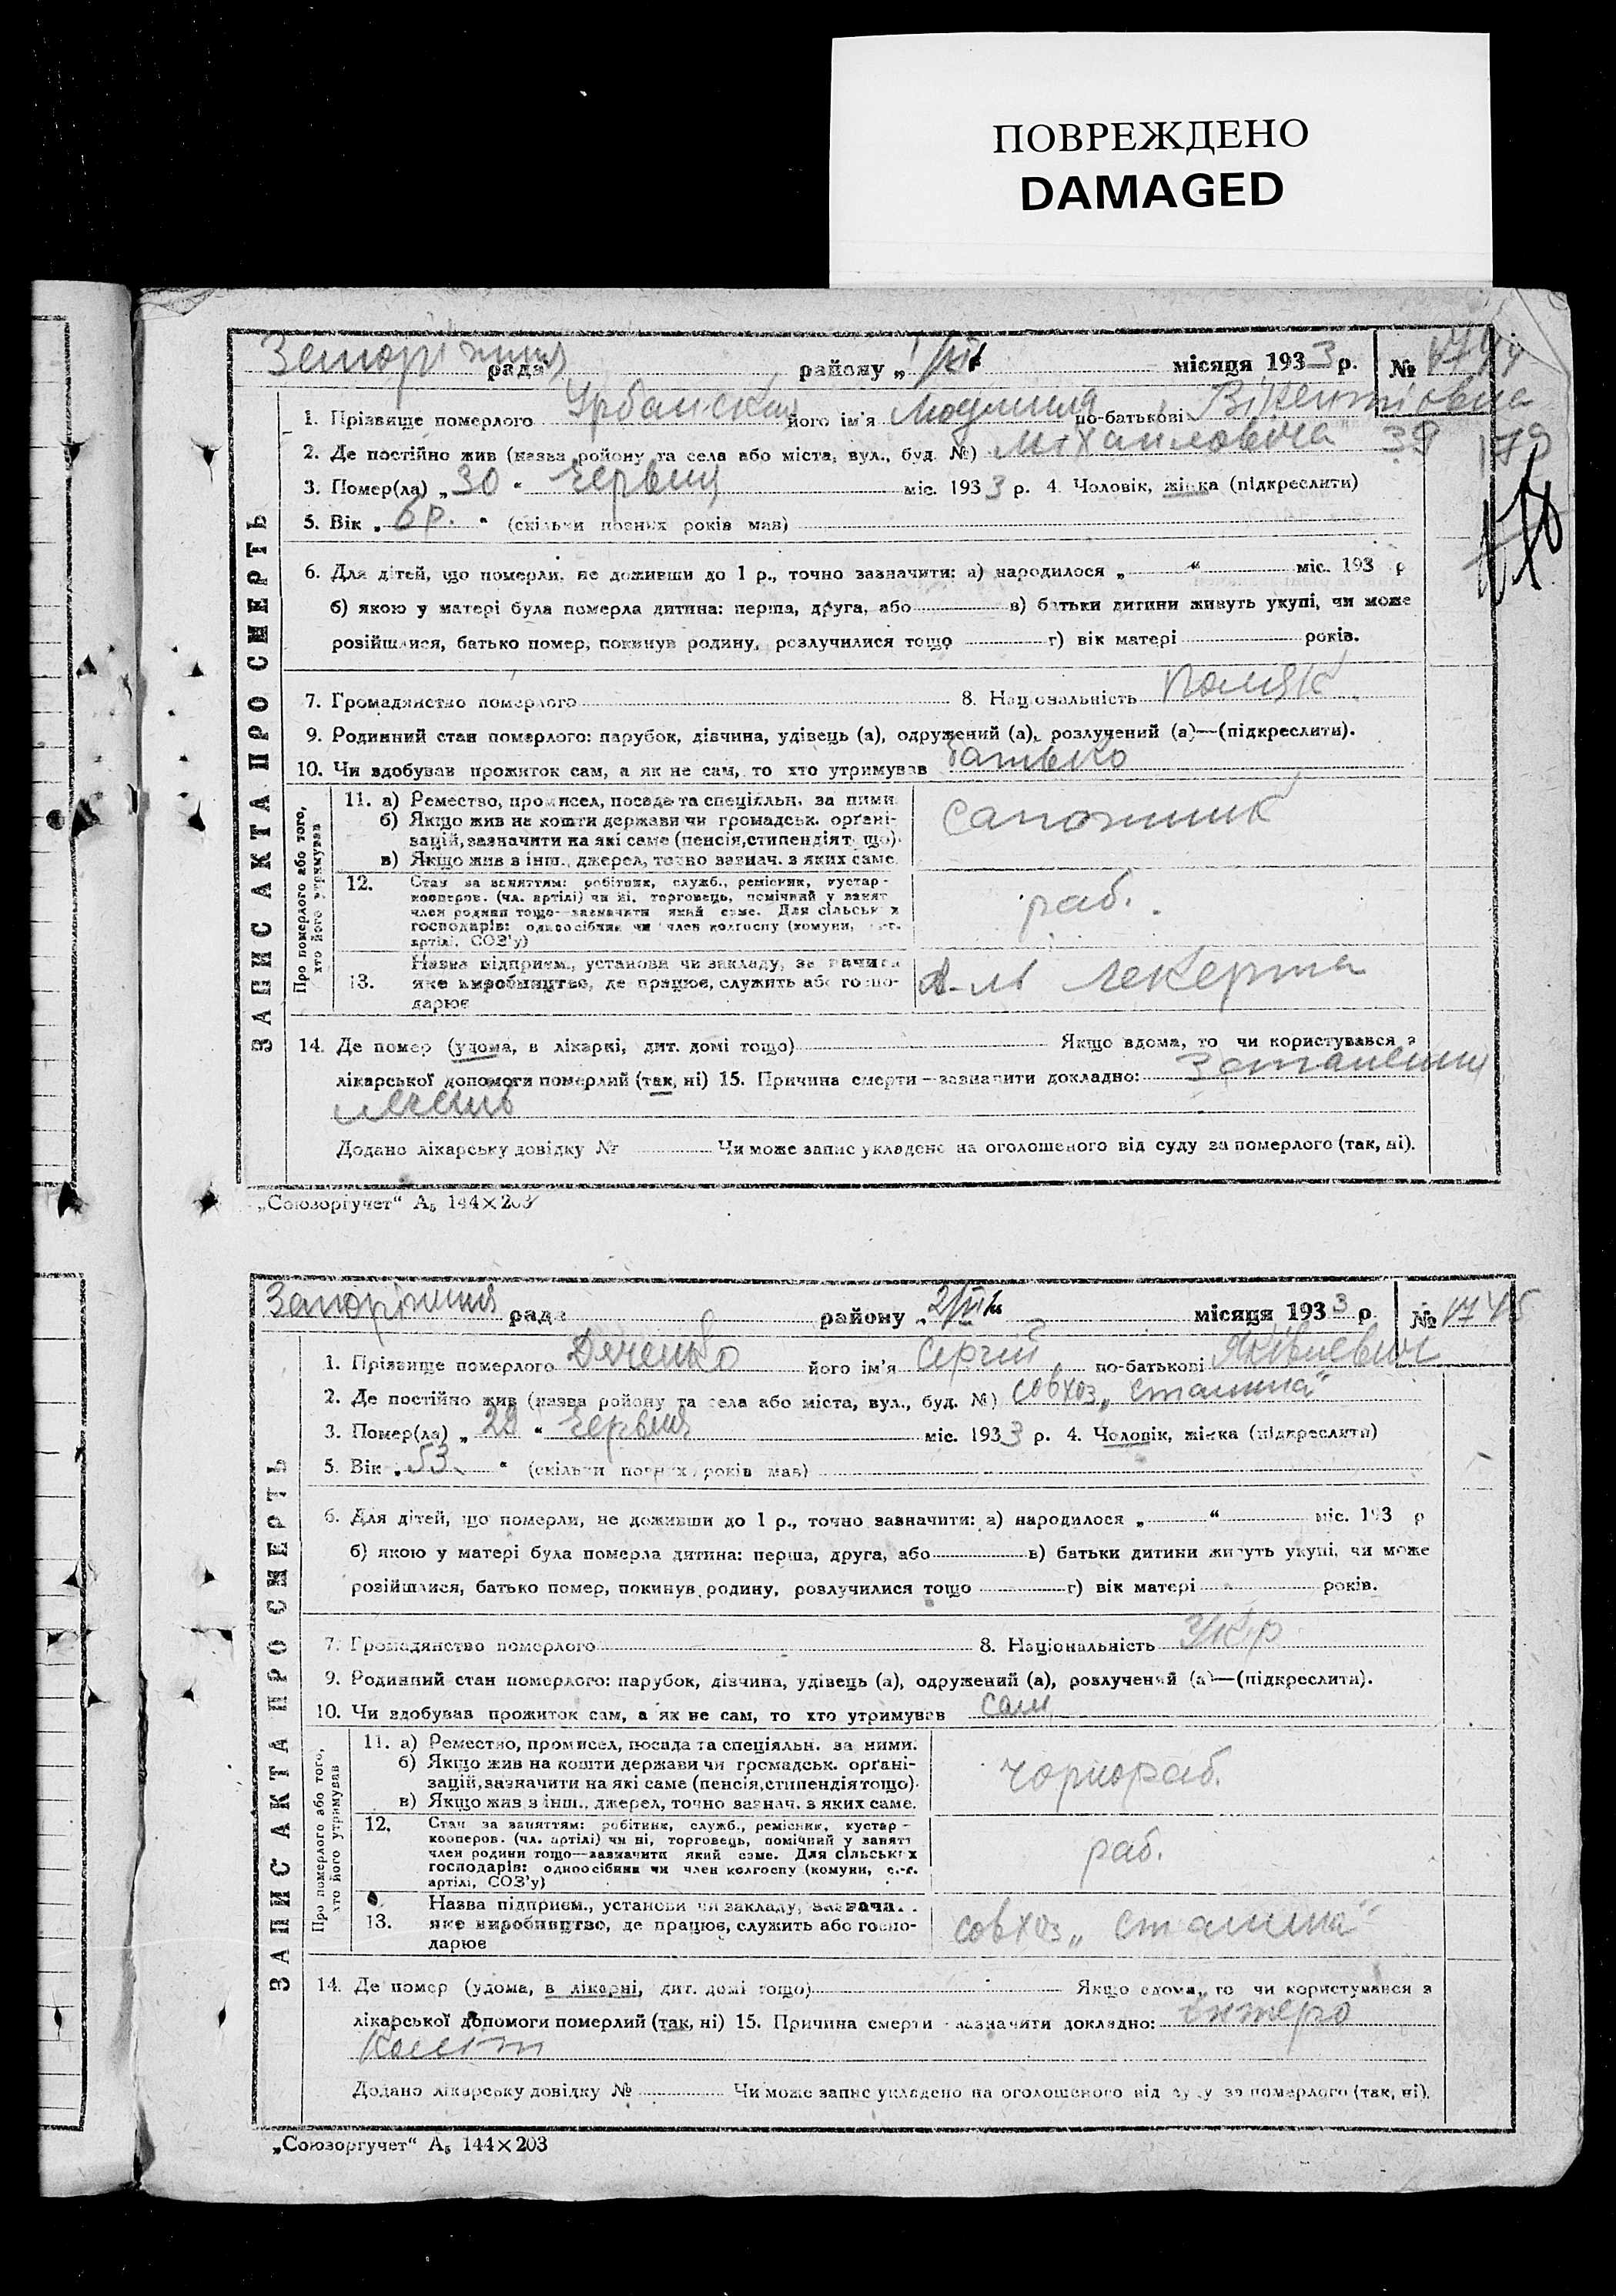 ПОВРЕЖДЕНО
DAMAGED
рада району „ /VII місяця 1933 р. №
ЗАПИС АКТА ПРО СМЕРТЬ
1. Прізвище померлого Урбанская його ім'я Людмила по-батькові Вікентіовна
2. Де постійно жив (назва району та села або міста, вул., буд. №) Михаиловича 39
3. Помер(ла) „30“ Червня міс. 1933 р. 4. Чоловік, жінка (підкреслити)
5. Вік „6 р.“ (скільки повних років мав)
6. Для дітей, що померли, не доживши до 1 р., точно зазначити: а) народилося „ “ міс. 193 р
б) якою у матері була померла дитина: перша, друга, або в) батьки дитини живуть укупі, чи може
розійшлися, батько помер, покинув родину, розлучилися тощо г) вік матері років.
7. Громадянство померлого 8. Національність поляк
9. Родинний стан померлого: парубок, дівчина, удівець (а), одружений (а), розлучений (а)—(підкреслити).
10. Чи здобував прожиток сам, а як не сам, то хто утримував батько
Про померлого або того, хто його утримував
11. а) Ремество, промисел, посада та спеціяльн. за ними.
б) Якщо жив на кошти держави чи громадськ. орґані-
зацій, зазначити на які саме (пенсія, стипендія т що).
в) Якщо жив з інш., джерел, точно зазнач. з яких саме.
сапожник
12. Стан за заняттям: робітник, служб., ремісник, кустар -
кооперов. (чл. артілі) чи ні, торговець, помічний у занят
член родини тощо—зазначити який саме. Для сільськ х
господарів: одноосібник чи член колгоспу (комуни, с.-г.
артілі, СОЗ'у)
раб.
13. Назва підприєм., установи чи закладу, зазначити
яке виробництво, де працює, служить або госпо-
дарює
14. Де помер (удома, в лікарні, дит. домі тощо) Якщо вдома, то чи користувався з
лікарської допомоги померлий (так, ні) 15. Причина смерти—зазначити докладно:
Додано лікарську довідку № Чи може запис укладено на оголошеного від суду за померлого (так, ні).
„Союзоргучет“ А₅ 144×203
рада району „2/VII“ місяця 1933 р. № 1745
ЗАПИС АКТА ПРО СМЕРТЬ
1. Прізвище померлого Дяченко його ім'я Сергій по-батькові Яківлевич
2. Де постійно жив (назва району та села або міста, вул., буд. №) совхоз „Сталина“
3. Помер(ла) „28“ Червня міс. 1933 р. 4. Чоловік, жінка (підкреслити)
5. Вік „53“ (скільки повних років мав)
6. Для дітей, що померли, не доживши до 1 р., точно зазначити: а) народилося „ “ міс. 193 р
б) якою у матері була померла дитина: перша, друга, або в) батьки дитини живуть укупі, чи може
розійшлися, батько помер, покинув родину, розлучилися тощо г) вік матері років.
7. Громадянство померлого 8. Національність Укр
9. Родинний стан померлого: парубок, дівчина, удівець (а), одружений (а), розлучений (а)—(підкреслити).
10. Чи здобував прожиток сам, а як не сам, то хто утримував сам
Про померлого або того, хто його утримував
11. а) Ремество, промисел, посада та спеціяльн. за ними.
б) Якщо жив на кошти держави чи громадськ. орґані-
зацій, зазначити на які саме (пенсія, стипендія тощо).
в) Якщо жив з інш., джерел, точно зазнач. з яких саме.
чорнораб.
12. Стан за заняттям: робітник, служб., ремісник, кустар -
кооперов. (чл. артілі) чи ні, торговець, помічний у занятт
член родини тощо—зазначити який саме. Для сільських
господарів: одноосібник чи член колгоспу (комуни, с.-г.
артілі, СОЗ'у)
раб.
13. Назва підприєм., установи чи закладу, зазначи
яке виробництво, де працює, служить або госпо-
дарює
совхоз „Сталина“
14. Де помер (удома, в лікарні, дит. домі тощо) Якщо вдома, то чи користувався з
лікарської допомоги померлий (так, ні) 15. Причина смерти - зазначити докладно: Ентеро
Коліт
Додано лікарську довідку № Чи може запис укладено на оголошеного від суду за померлого (так, ні).
„Союзоргучет“ А₅ 144×203